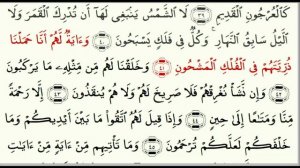 كَالْعُرْجُونِ الْقَدِيمِ ٣٩ لَا الشَّمْسُ يَنۢبَغِى لَهَآ أَن تُدْرِكَ الْقَمَرَ وَلَا
الَّيْلُ سَابِقُ النَّهَارِ ۚ وَكُلٌّ فِى فَلَكٍ يَسْبَحُونَ ٤٠ وَءَايَةٌ لَّهُمْ أَنَّا حَمَلْنَا
ذُرِّيَّتَهُمْ فِى الْفُلْكِ الْمَشْحُونِ ٤١ وَخَلَقْنَا لَهُم مِّن مِّثْلِهِۦ مَا يَرْكَبُونَ
٤٢ وَإِن نَّشَأْ نُغْرِقْهُمْ فَلَا صَرِيخَ لَهُمْ وَلَا هُمْ يُنقَذُونَ ٤٣ إِلَّا رَحْمَةً
مِّنَّا وَمَتَٰعًا إِلَىٰ حِينٍ ٤٤ وَإِذَا قِيلَ لَهُمُ اتَّقُوا۟ مَا بَيْنَ أَيْدِيكُمْ وَمَا
خَلْفَكُمْ لَعَلَّكُمْ تُرْحَمُونَ ٤٥ وَمَا تَأْتِيهِم مِّنْ ءَايَةٍ مِّنْ ءَايَٰتِ